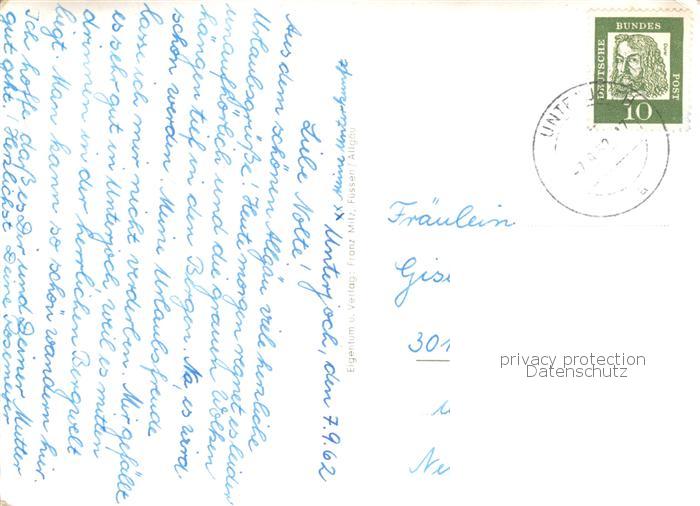 Unterjoch, den 7.9.62
Liebe Nolte!
Aus dem schönen Allgäu viele herzliche
Urlaubsgrüße! Heute morgen regnet es leider
unaufhörlich und die grauen Wolken
hängen tief in den Bergen. Na, es wird
schon werden. Meine Urlaubsfreude
lasse ich mir nicht verderben. Mir gefällt
es sehr gut in Unterjoch, weil es mitten
drinnen in der herrlichen Bergwelt
liegt. Man kann so schön wandern hier.
Ich hoffe, daß es Dir und Deiner Mutter
gut geht! Herzlichst Deine Rosemeyer
Eigentum u. Verlag: Franz Milz, Füssen / Allgäu
DEUTSCHE BUNDES POST
10
Fräulein
Gis
301
Ne
privacy protection
Datenschutz